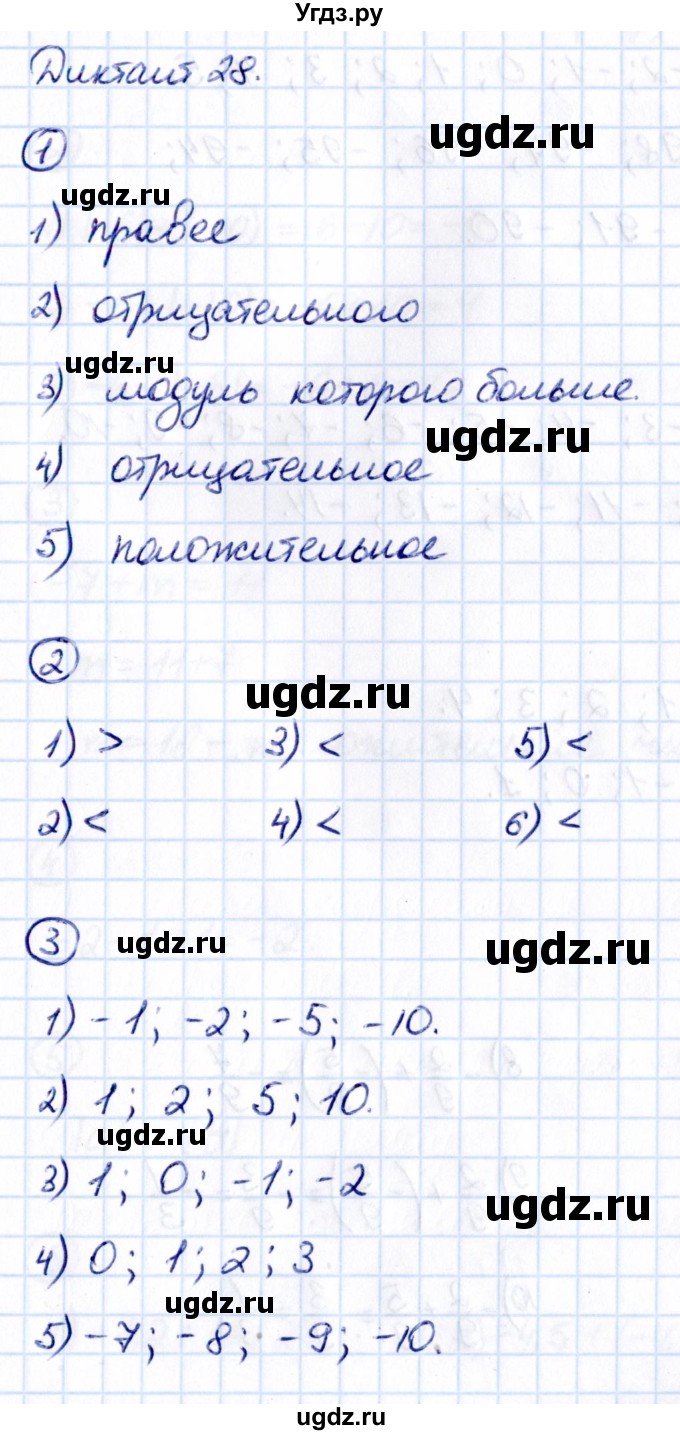 Угдз.ру
Диктант 28.
ugdz.ru
1
ugdz.ru
1) правее
2) отрицательного
ugdz.ru
3) модуль которого больше.
ugdz.ru
4) отрицательное
5) положительное
2
ugdz.ru
1) > 3) < 5) <
2) < 4) < 6) <
3 ugdz.ru ugdz.ru
1) -1; -2; -5; -10.
2) 1; 2; 5; 10.
ugdz.ru
3) 1; 0; -1; -2
ugdz.ru
4) 0; 1; 2; 3
ugdz.ru
5) -7; -8; -9; -10.
ugdz.ru